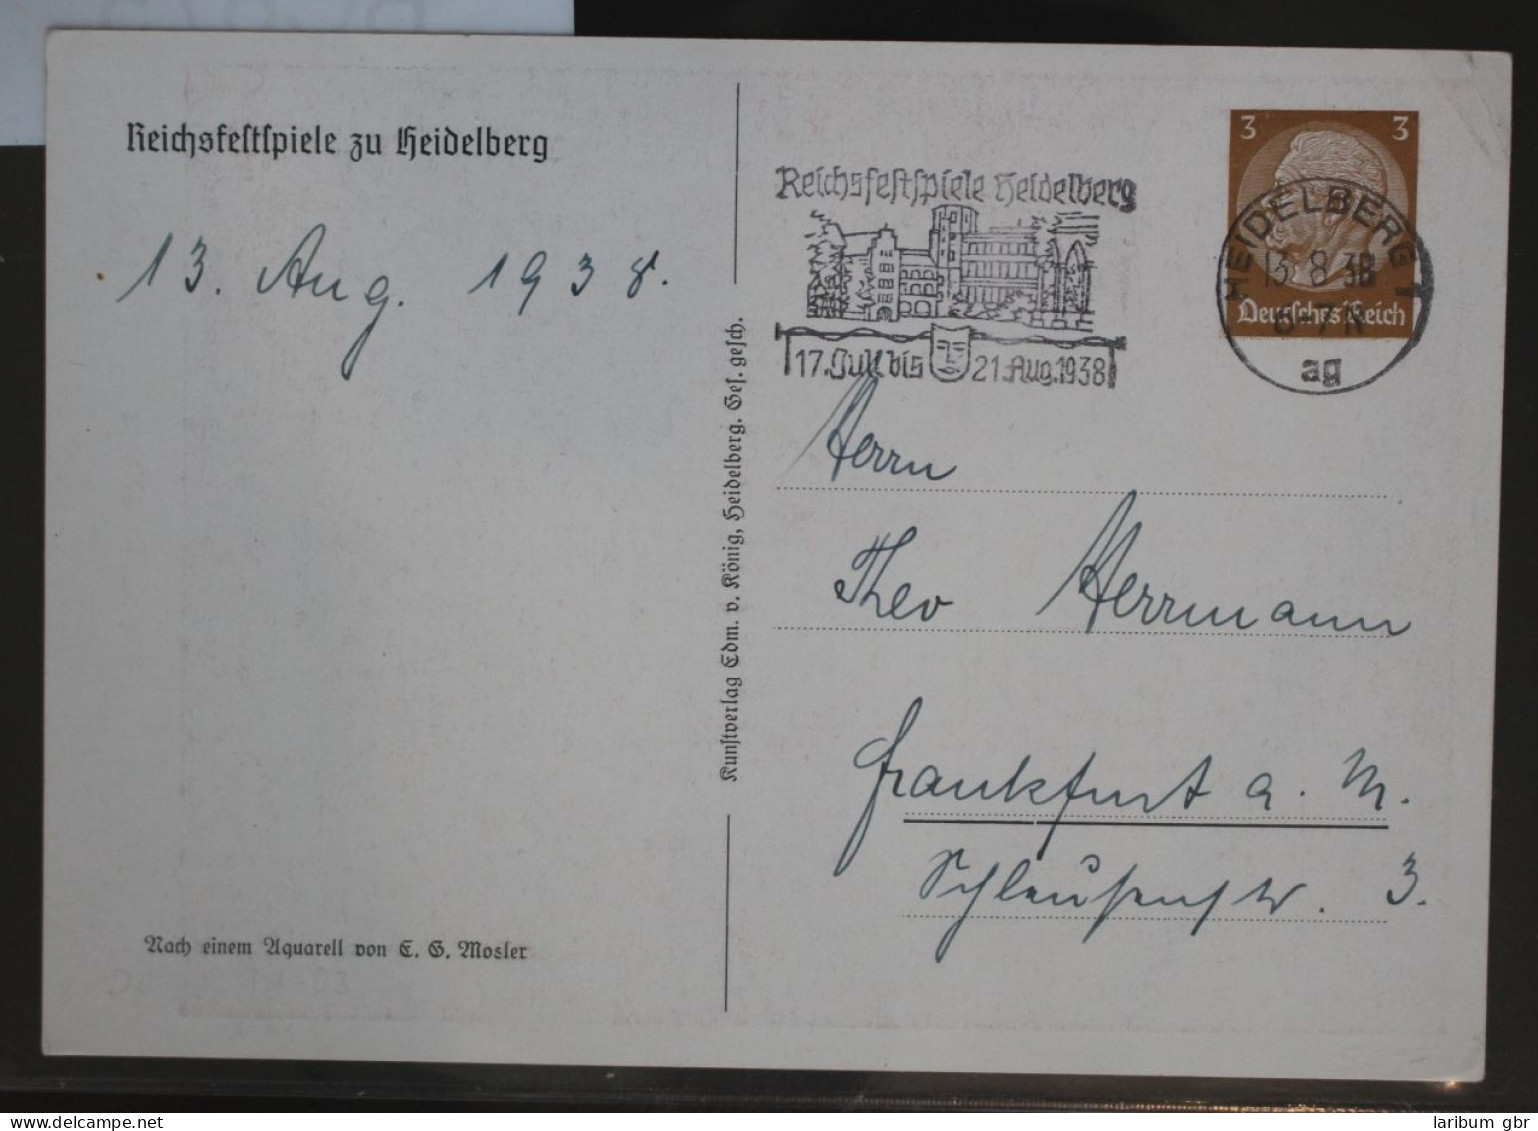 Reichsfestspiele zu Heidelberg
13. Aug. 1938.
Nach einem Aquarell von E. G. Mosler
Kunstverlag Edm. v. König, Heidelberg. Ges. gesch.
Reichsfestspiele Heidelberg
17. Juli bis 21. Aug. 1938
3 3
Deutsches Reich
HEIDELBERG 1
13.8.38
6-7 N
ag
Herrn
Theo Herrmann
Frankfurt a. M.
Schleusenstr. 3.
www.delcampe.net
laribum gbr